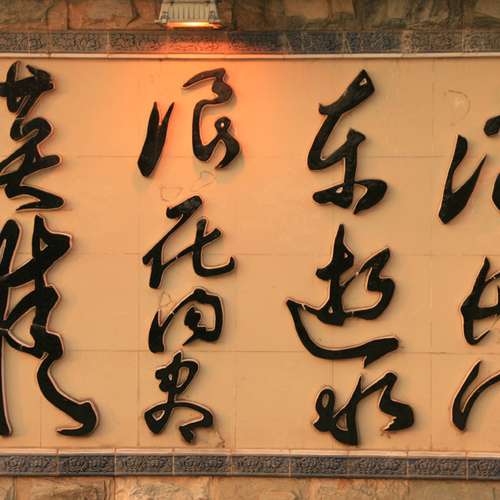 东逝水
浪花淘尽
英雄